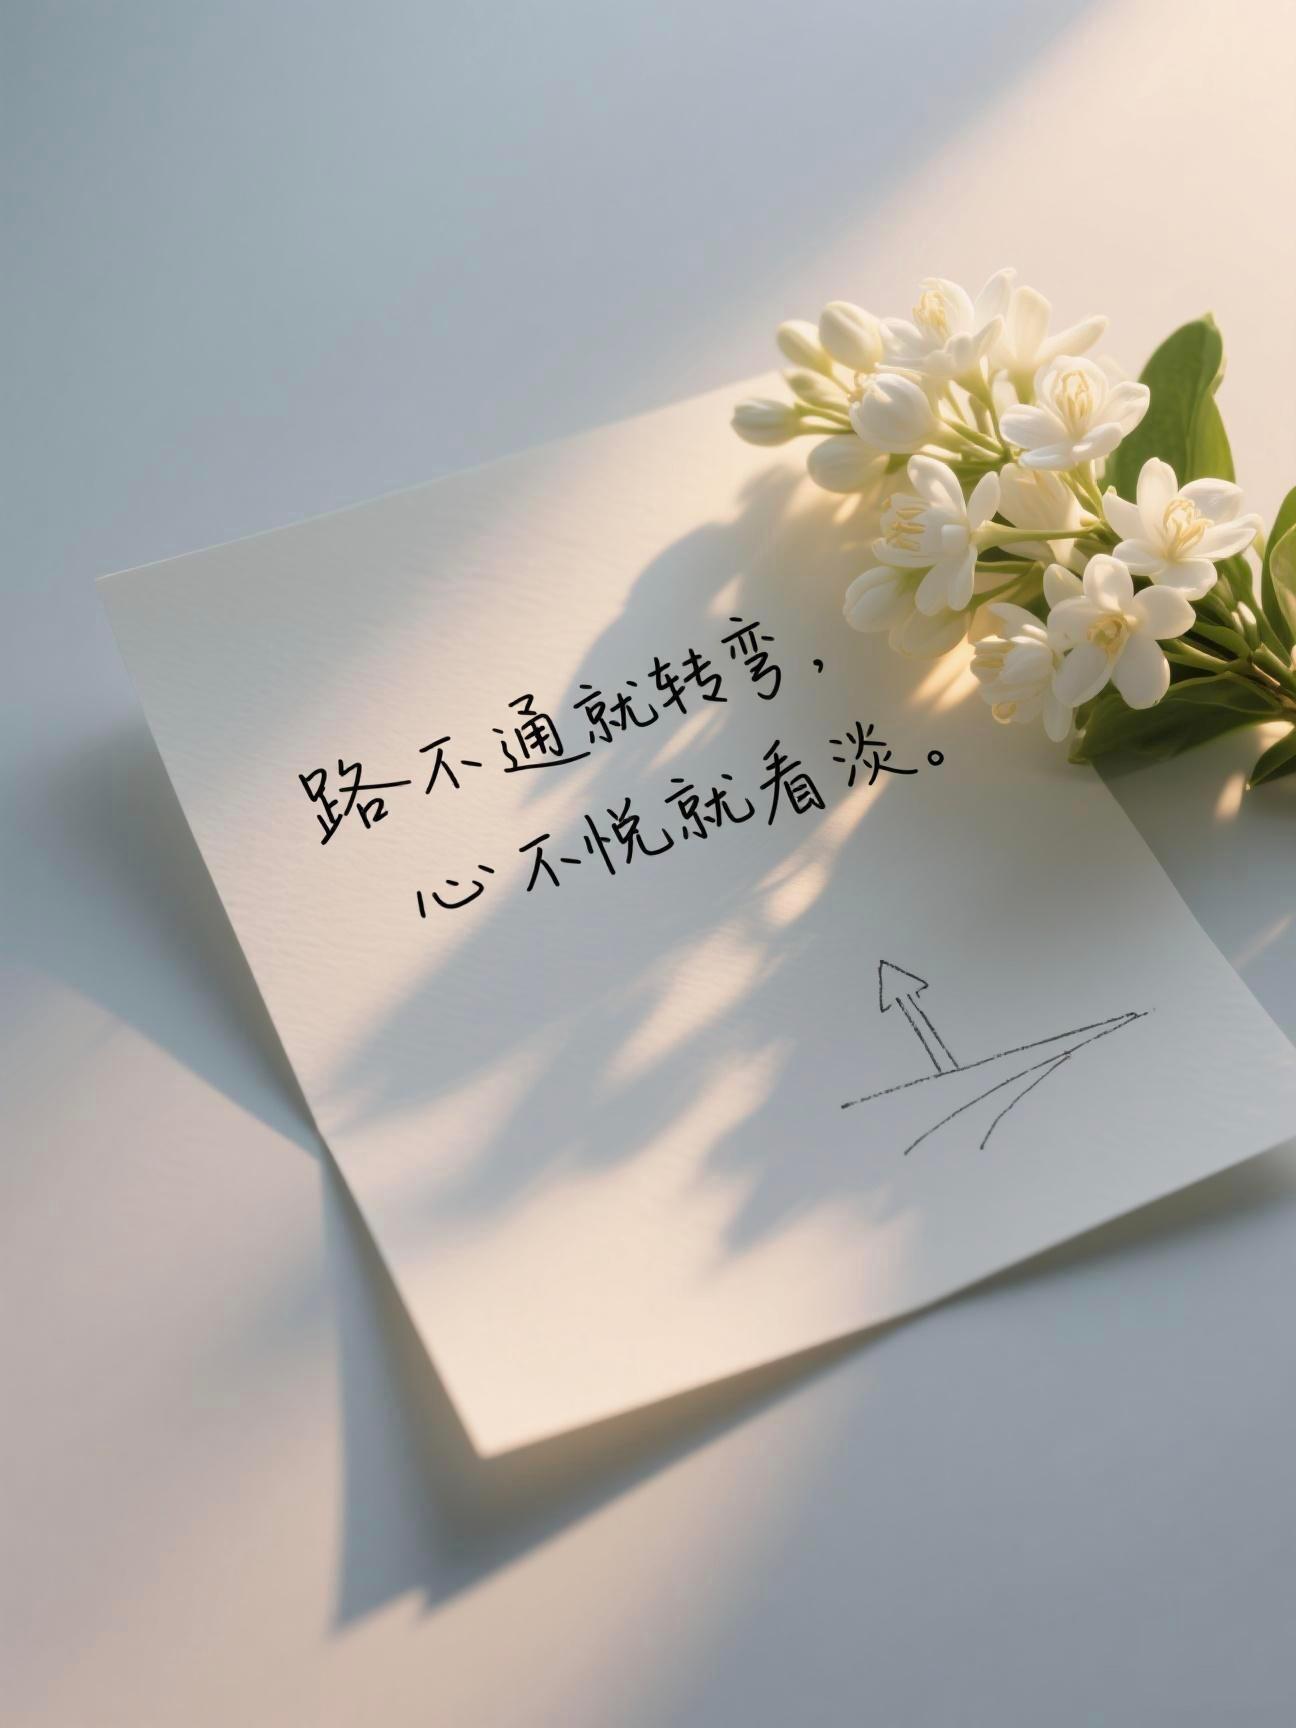 路不通就转弯，
心不悦就看淡。